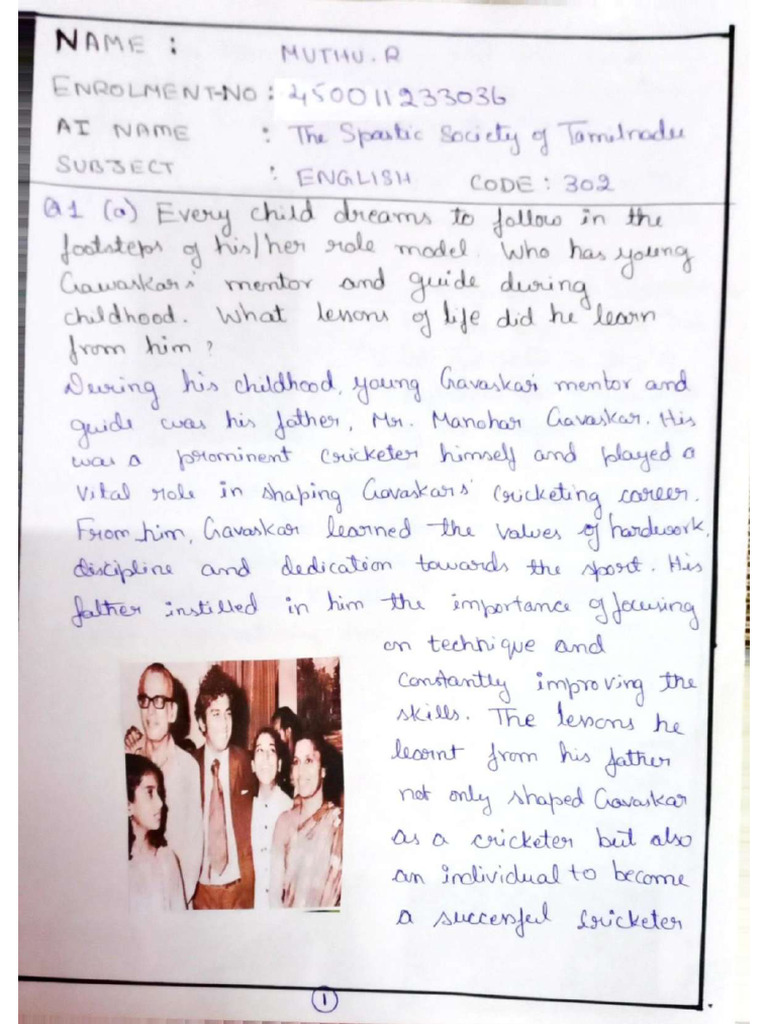 NAME : MUTHU.R
ENROLMENT-NO : 450011233036
AI NAME : The Spastic Society of Tamilnadu
SUBJECT : ENGLISH CODE : 302
Q1 (a) Every child dreams to follow in the
footsteps of his/her role model. Who has young
Gawaskars' mentor and guide during
childhood. What lessons of life did he learn
from him?
During his childhood, young Gavaskar mentor and
guide was his father, Mr. Manohar Gavaskar. His
was a prominent cricketer himself and played a
vital role in shaping Gavaskars' cricketing career.
From him, Gavaskar learned the values of hardwork,
discipline and dedication towards the sport. His
father instilled in him the importance of focusing
on technique and
constantly improving the
skills. The lessons he
learnt from his father
not only shaped Gavaskar
as a cricketer but also
an individual to become
a successful cricketer
1